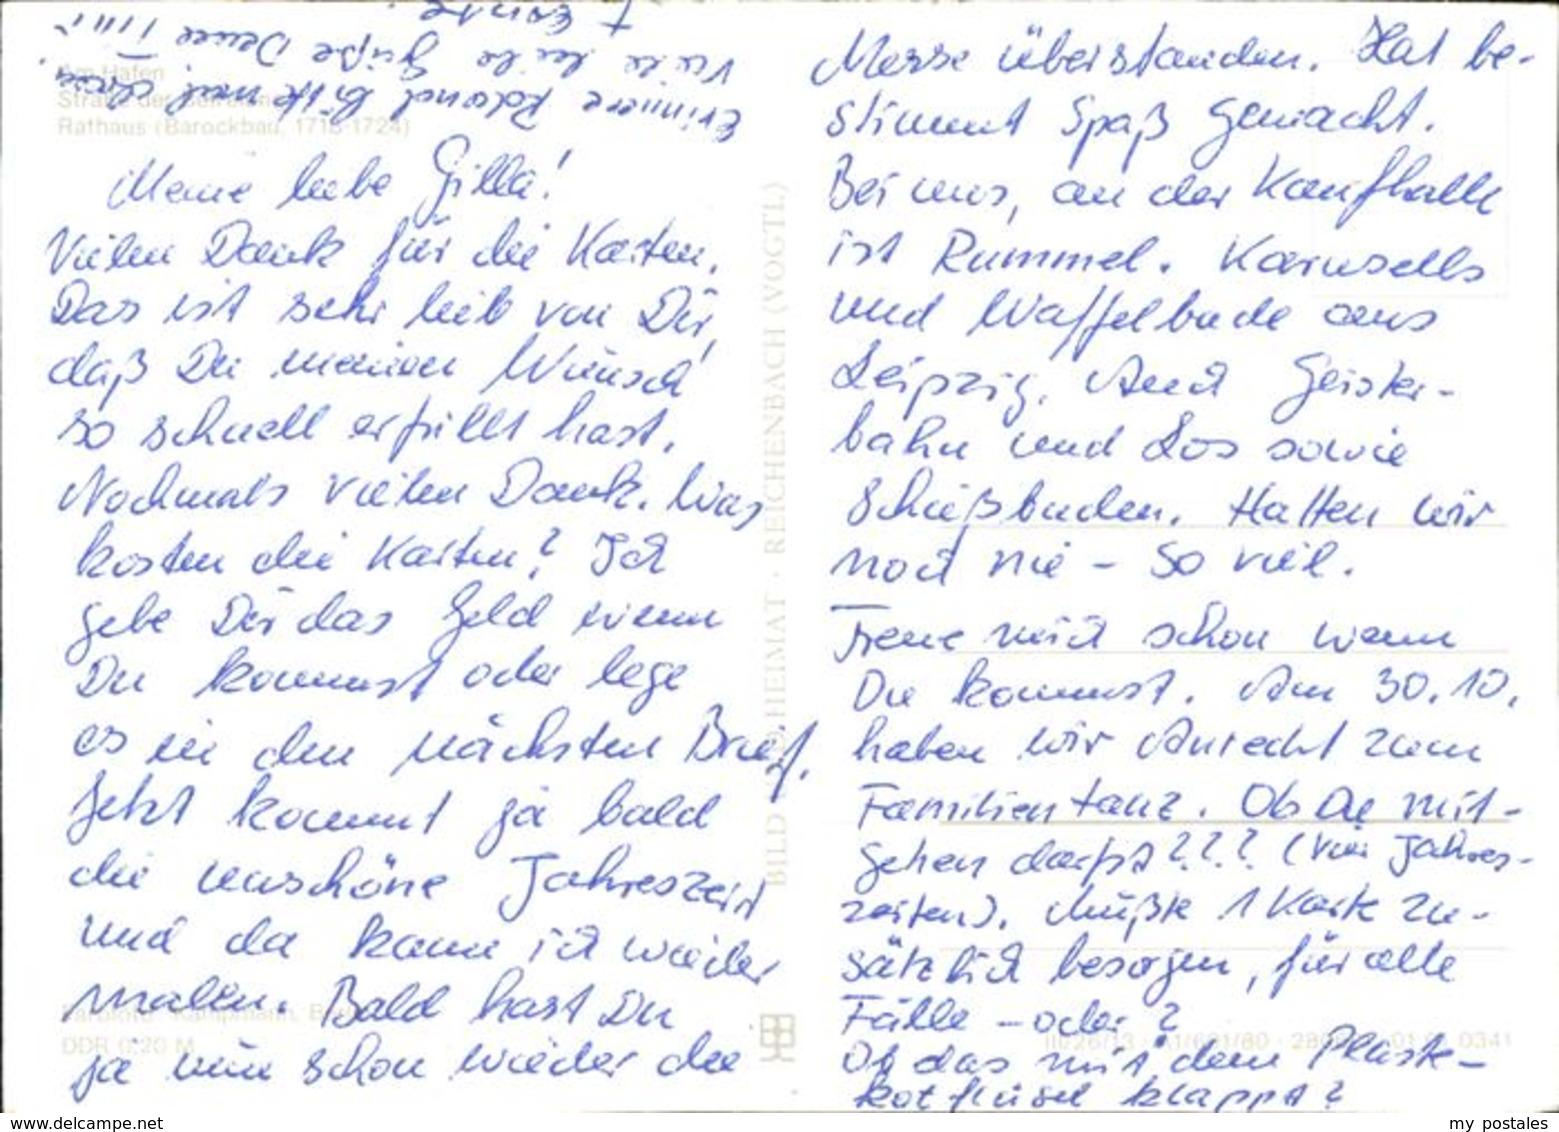 Am Hafen
Straße der Befreiung
Rathaus (Barockbau, 1718-1724)
Meine liebe Gilla!
Vielen Dank für die Karten.
Das ist sehr lieb von Dir,
daß Du meinen Wunsch
so schnell erfüllt hast.
Nochmals vielen Dank. Was
kosten die Karten? Ich
gebe Dir das Geld wenn
Du kommst oder lege
es in den nächsten Brief.
Jetzt kommt ja bald
die unschöne Jahreszeit
und da kann ich wieder
malen. Bald hast Du
ja nun schon wieder die
Farbfoto: Kampmann, Berlin
DDR 0,20 M
BILD UND HEIMAT · REICHENBACH (VOGTL)
Messe überstanden. Hat be-
stimmt Spaß gemacht.
Bei uns, an der Kaufhalle
ist Rummel. Karusells
und Waffelbude aus
Leipzig. Auch Geister-
bahn und Los sowie
Schießbuden. Hatten wir
noch nie – so viel.
Freue mich schon wenn
Du kommst. Am 30.10.
haben wir Anrecht zum
Familientanz. Ob Du mit-
gehen darfst??? (Vier Jahres-
zeiten). Müßte 1 Karte zu-
sätzlich besorgen, für alle
Fälle – oder?
Ob das mit dem Plaste-
kotflügel klappt?
Erinnere Roland bitte mal,
Viele liebe Grüße Deine
III/26/13 · A1/601/80 · 01 0341
www.delcampe.net
my postales